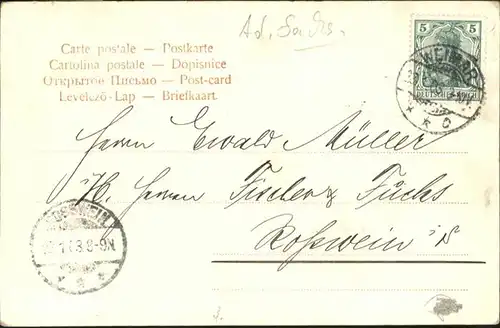 Carte postale — Postkarte
Cartolina postale — Dopisnice
Открытое Письмо — Post-card
Levelező-Lap — Briefkaart.
5 5
DEUTSCHES REICH
WEIMAR
* * c
Herrn Ewald Müller
Herrn Fischer & Fuchs
Rosswein i/S
8-9N